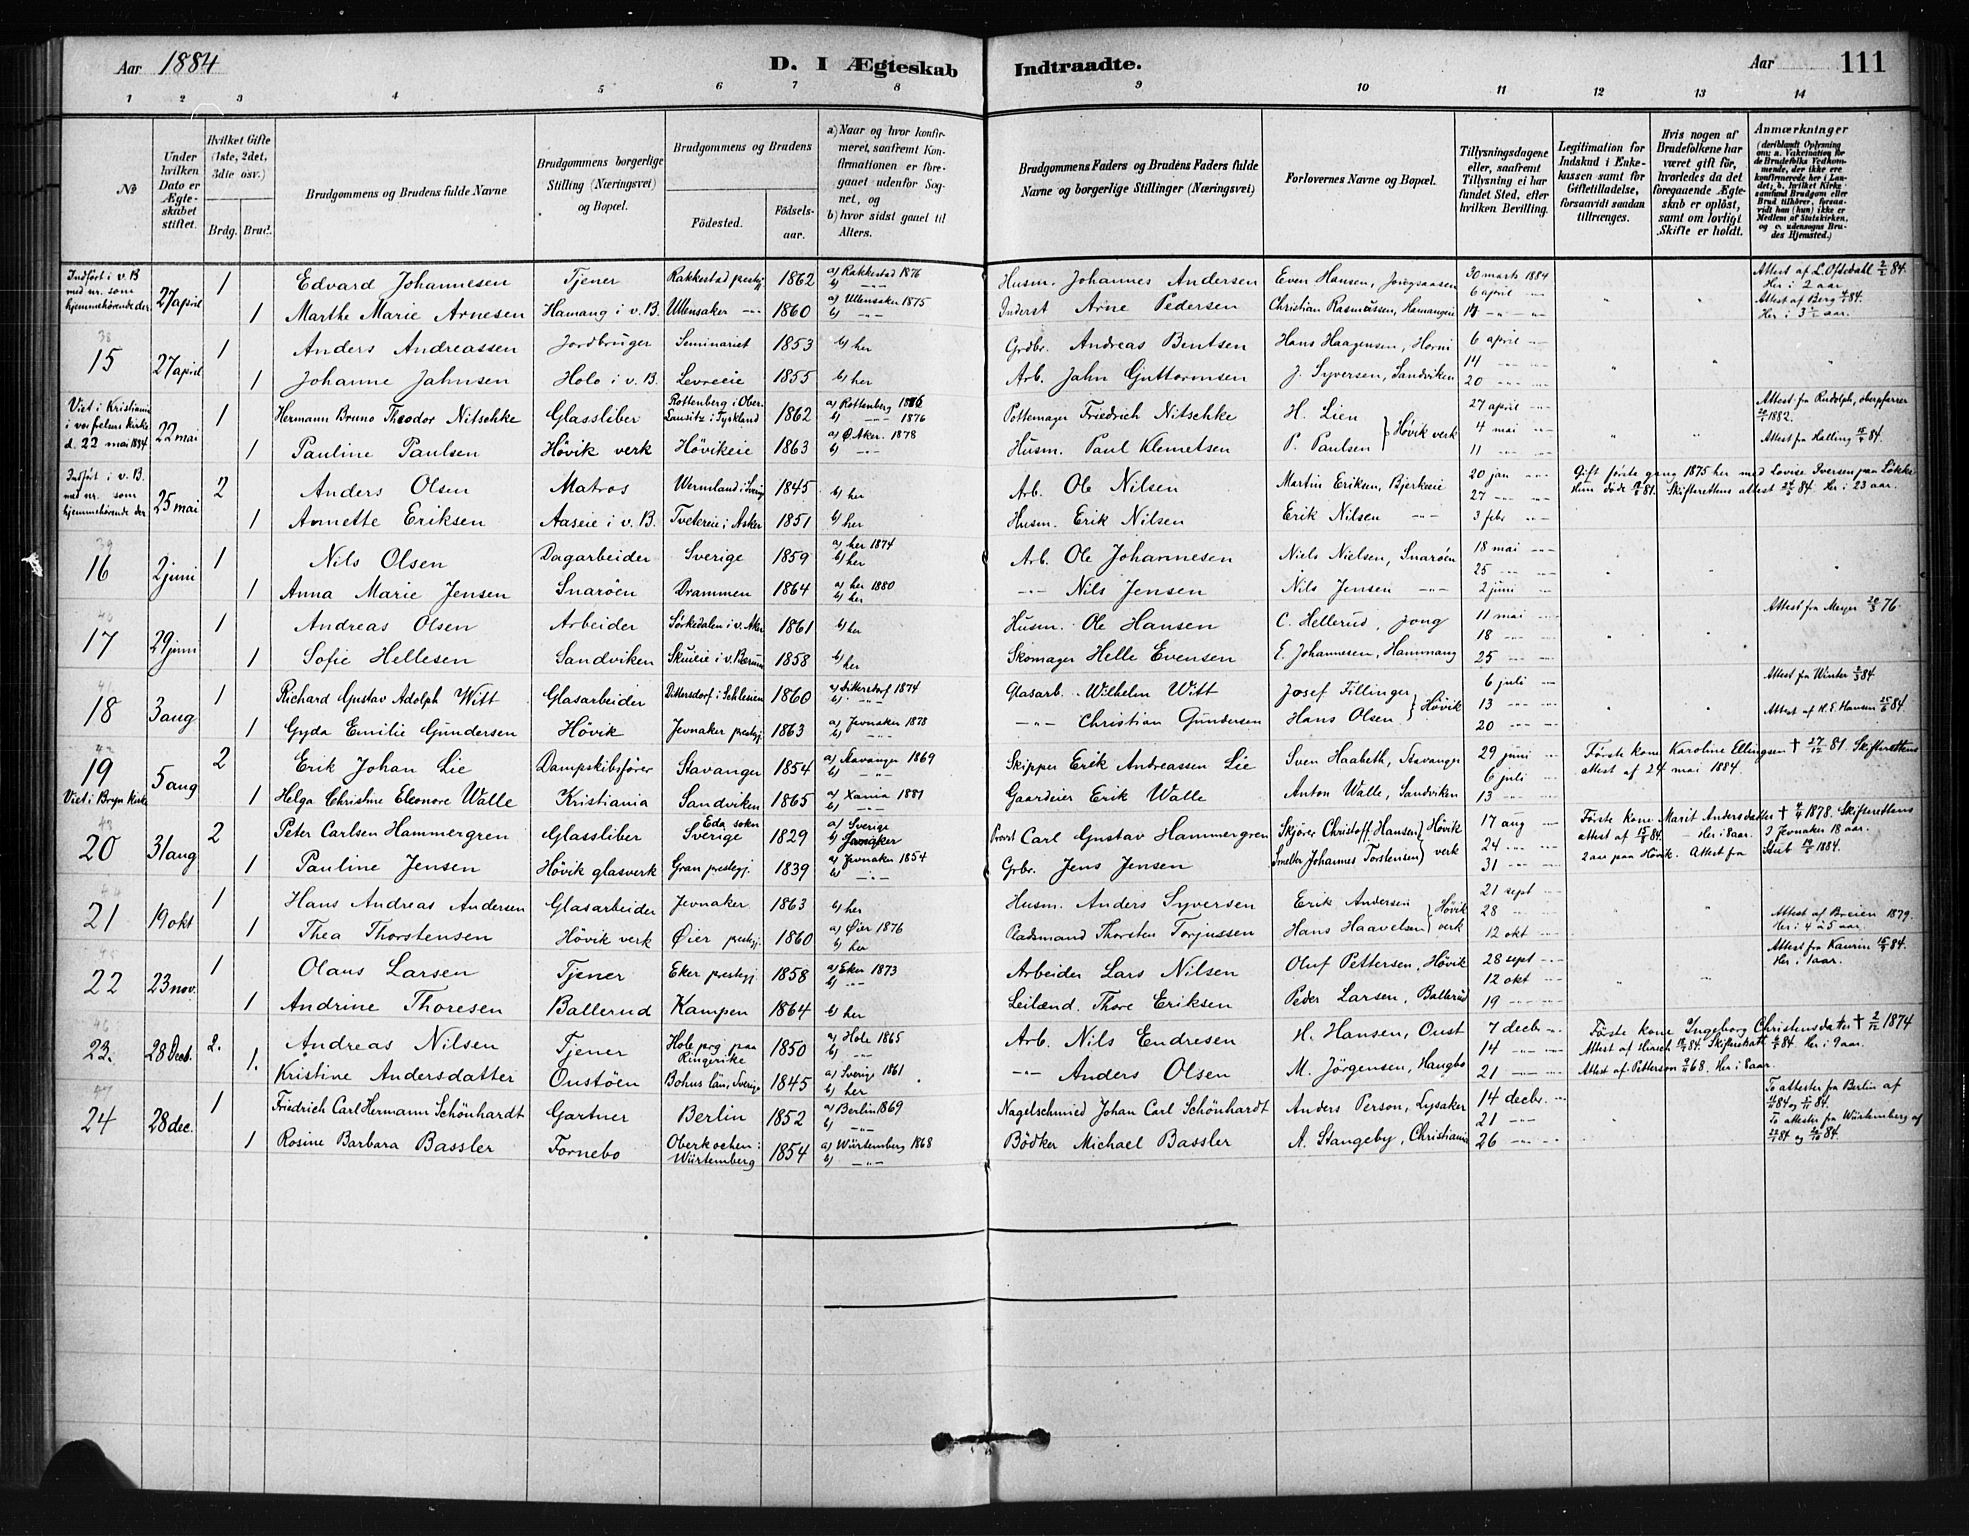 Aar 1884
D. I Ægteskab Indtraadte.
Aar 111
1 2 3 4 5 6 7 8 9 10 11 12 13 14
No
Under hvilken Dato er Ægteskabet stiftet.
Hvilket Gifte (1ste, 2det, 3die osv.)
Brdg. Brud.
Brudgommens og Brudens fulde Navne
Brudgommens borgerlige Stilling (Næringsvei) og Bopæl.
Brudgommens og Brudens
Födested.
Födsels-aar.
a) Naar og hvor konfirmeret, saafremt Konfirmationen er foregaaet udenfor Sognet, og
b) hvor sidst gaaet til Alters.
Brudgommens Faders og Brudens Faders fulde Navne og borgerlige Stillinger (Næringsvei)
Forlovernes Navne og Bopæl.
Tillysningsdagene eller, saafremt Tillysning ei har fundet Sted, efter hvilken Bevilling.
Legitimation for Indskud i Enkekassen samt for Giftetilladelse, forsaavidt saadan tiltrænges.
Hvis nogen af Brudefolkene har været gift för, hvorledes da det foregaaende Ægteskab er oplöst, samt om lovligt Skifte er holdt.
Anmærkninger
(deriblandt Oplysning om: a. Vakcination for de Brudefolks Vedkommende, der ikke ere konfirmerede her i Landet; b. hvilket Kirkesamfund Brudgom eller Brud tilhörer, forsaavidt han (hun) ikke er Medlem af Statskirken, og c. udensogns Brudes Hjemsted.)
Indført i v. B med nr. som hjemmehörende der 27 april 1 Edvard Johannesen Tjener Rakkestad prestgj 1862 a) Rakkestad 1876 b) —"— Husm. Johannes Andersen Even Hansen, Jongsaasen 30 marts 1884 6 april —"— Attest af L. Oftedahl 2/2 84. Her i 2 aar
1 Marthe Marie Arnesen Hamang i v. B. Ullensaker —"— 1860 a) Ullensaker 1875 b) —"— Inderst Arne Pedersen Christian Rasmussen, Hamangeie 14 —"— Attest af Berg 4/4 84. Her i 3 1/2 aar.
38
15 27 april 1 Anders Andreassen Jordbruger Seminariet 1853 b) her Grdbr. Andreas Bentsen Hans Haagensen, Horni 6 april —"—
14 —"—
1 Johanne Jahnsen Holo i v. B. Levreeie 1855 b) her Arb. Jahn Guttormsen J. Syversen, Sandviken 20 —"—
Viet i Kristiania i vor frelsers kirke d. 22 mai 1884 22 mai 1 Hermann Bruno Theodor Nitschke Glassliber Rottenberg i Ober-Lausitz i Tyskland 1862 a) Rottenberg 1876 b) —"— 1876 Pottemager Friedrich Nitschke H. Lien 27 april —"— Attest fra Rudolph, oberpfarrer 1882.
4 mai —"—
1 Pauline Paulsen Høvik verk Høvikeie 1863 a) Ø. Aker. 1878 b) —"— Husm. Paul Klemetsen P. Paulsen } Høvik verk 11 —"— Attest fra Halling 15/5 84.
Indført i v. B. med nr. som hjemmehörende der 25 mai 2 Anders Olsen Matros Wermland i Sverige 1845 b) her Arb. Ole Nilsen Martin Eriksen, Bjerkeeie 20 jan —"— Gift første gang 1875 her med Lovise Iversen paa Løkke
27 —"— Hun døde 81. Skifterettens attest 84. Her i 23 aar.
1 Annette Eriksen Aaseie i v. B. Tvetereie i Asker 1851 b) her Husm. Erik Nilsen Erik Nilsen —"— 3 febr —"—
39
16 2 juni 1 Nils Olsen Dagarbeider Sverige 1859 a) her 1874 b) her Arb. Ole Johannesen Niels Nielsen, Snarøen 18 mai —"—
25 —"—
1 Anna Marie Jensen Snarøen Drammen 1864 a) her 1880 b) her —"— Nils Jensen Nils Jensen —"— 2 juni —"—
40
17 29 juni 1 Andreas Olsen Arbeider Sörkedalen i v. Aker 1861 b) her Husm. Ole Hansen C. Hellerud, Jong 11 mai —"— Attest fra Meyer 20/3 76.
18 —"—
1 Sofie Hellesen Sandviken Skuieie i v. Bærum 1858 b) her Skomager Helle Evensen E. Johannesen, Hammang 25 —"—
41
18 3 aug 1 Richard Gustav Adolph Witt Glasarbeider Dittersdorf i Schlesien 1860 a) Dittersdorf 1874 b) —"— Glasarb. Wilhelm Witt Josef Fillinger 6 juli —"— Attest fra Winter 84.
13 —"—
1 Gyda Emilie Gundersen Høvik Jevnaker prestgj. 1863 a) Jevnaker 1878 b) —"— —"— Christian Gundersen Hans Olsen } Høvik 20 —"— Attest af H. E. Hansen 25/6 84.
42
19 Viet i Bryn Kirke 5 aug 2 Erik Johan Lie Dampskibsfører Stavanger 1854 a) Stavanger 1869 b) —"— Skipper Erik Andreassen Lie Sven Haabeth, Stavanger 29 juni —"— Første kone Karoline Ellingsen † 27/12 81. Skifterettens
6 juli —"— attest af 24 mai 1884.
1 Helga Christine Eleonore Walle Kristiania Sandviken 1865 a) Xania 1881 b) —"— Gaardeier Erik Walle Anton Walle, Sandviken 13 —"—
43
20 31 aug 2 Peter Carlsen Hammergren Glassliber Eda sokn Sverige 1829 a) Sverige b) Jevnaker Provst Carl Gustav Hammergren Skjærer Christoff. Hansen 17 aug —"— Første kone Marit Andersdatter † 4/4 1878. Skifterettens
24 —"— attest af 15/8 84. — Her i 8 aar. I Jevnaker 18 aar.
1 Pauline Jensen Høvik glasverk Gran prestegj. 1839 a) Jevnaker 1854 b) —"— Grbr. Jens Jensen Smelter Johannes Torstensen } Høvik verk 31 —"— 2 aar paa Høvik. Attest fra Stub 1884.
44
21 19 okt 1 Hans Andreas Andersen Glasarbeider Jevnaker 1863 b) her Husm. Anders Syversen Erik Andersen 21 sept —"—
28 —"—
1 Thea Thorstensen Høvik verk Øier prestgj. 1860 a) Øier 1876 b) her Pladsmand Thorsten Torjussen Hans Haavelsen } Høvik verk 12 okt —"— Attest af Breien 1879. Her i 4 à 5 aar.
45
22 23 nov. 1 Olaus Larsen Tjener Eker prestegj. 1858 a) Eker 1873 b) —"— Arbeider Lars Nilsen Oluf Pettersen, Høvik 28 sept —"— Attest fra Kaurin 15/9 84. Her i 1 aar.
12 okt —"—
1 Andrine Thoresen Ballerud Kampen 1864 b) her Leilænd. Thore Eriksen Peder Larsen, Ballerud 19 —"—
46
23. 28 Decb. 2. Andreas Nilsen Tjener Hole prg paa Ringerike 1850 a) Hole 1865 b) —"— Arb. Nils Endresen H. Hansen, Oust 7 decbr —"— Første kone Ingeborg Christensdatter † 2/12 1874
14 —"— Attest af Hirsch 84. Skifteskatt. 84. Her i 9 aar.
1. Kristine Andersdatter Onstøen Bohus län, Sverige 1845 a) Sverige 1861 b) her —"— Anders Olsen M. Jörgensen, Haugbo 21 —"— Attest af Petterson 68. Her i 8 aar.
47
24 28 dec. 1 Friedrich Carl Hermann Schönhardt Gartner Berlin 1852 a) Berlin 1869 b) —"— Nagelschmied Johan Carl Schönhardt Anders Person, Lysaker 14 decbr. —"— To attester fra Berlin af 84 og 84.
21 —"—
1 Rosine Barbara Bassler Fornebo Oberkochen i Würtemberg 1854 a) Würtemberg 1868 b) —"— Bödker Michael Bassler A. Stangeby, Christiania 26 —"— To attester fra Würtemberg af 84 og 84.